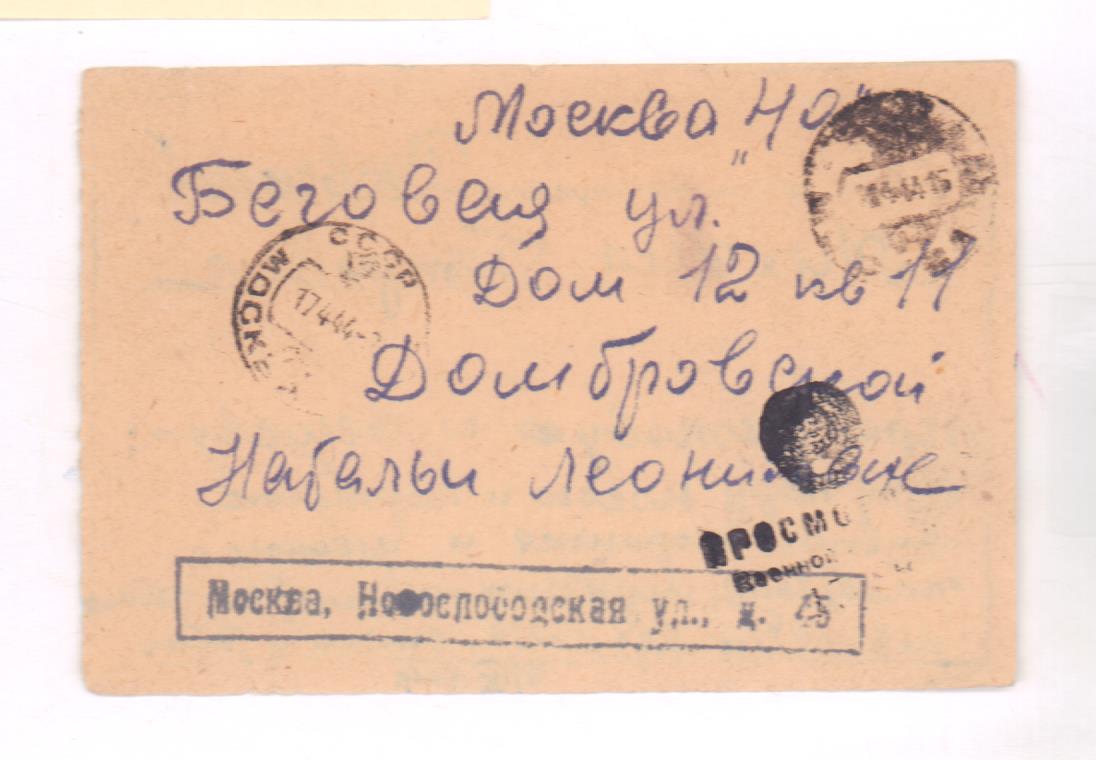 Москва "40"
Беговая ул.
Дом 12 кв 11
Домбровской
Натальи Леонидовне
СССР
МОСКВА
17 4 44
4 44 15
ПРОСМО
Военной
Москва, Новослободская ул., д. 45